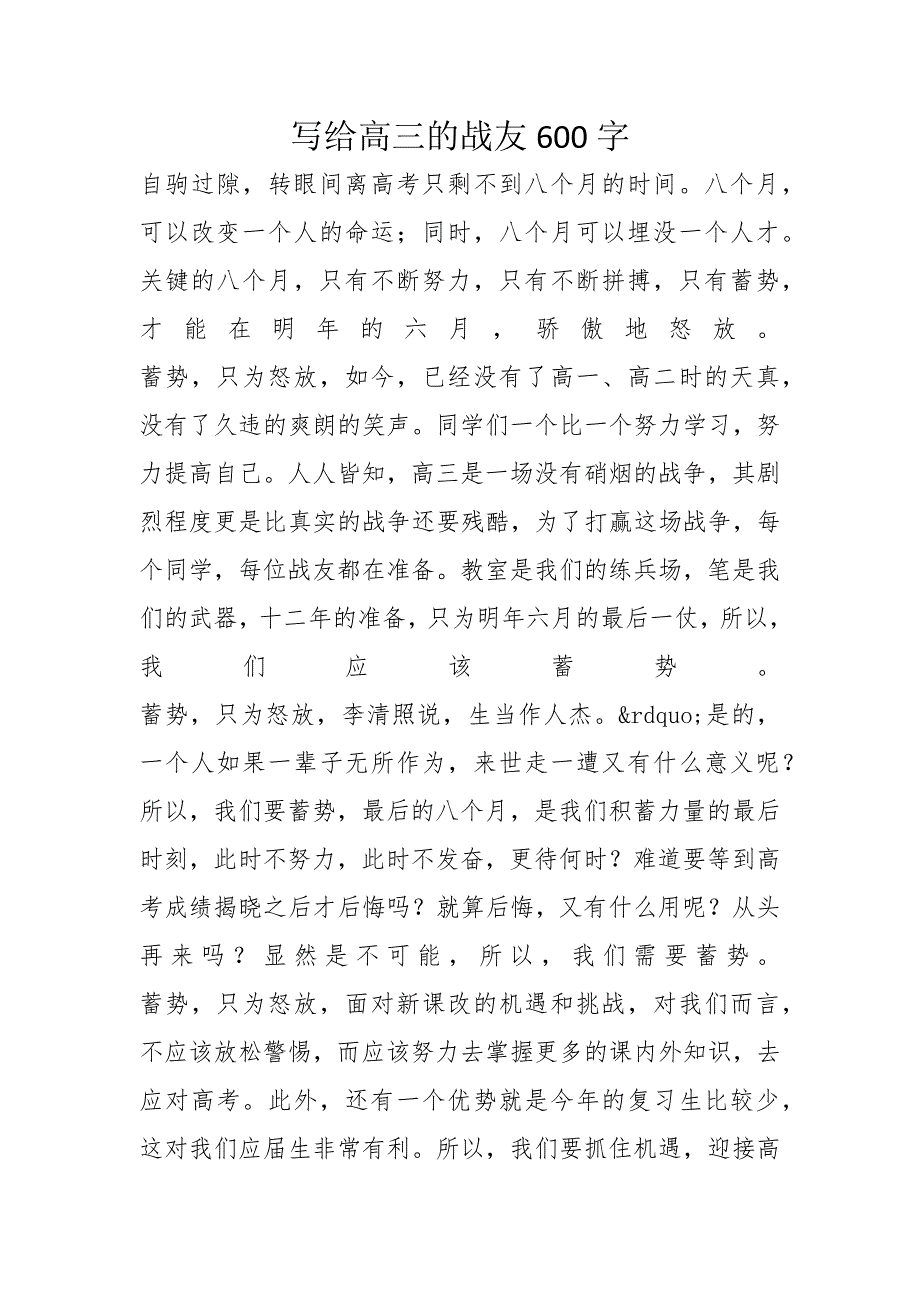 写给高三的战友 600 字
自驹过隙，转眼间离高考只剩不到八个月的时间。八个月，
可以改变一个人的命运；同时，八个月可以埋没一个人才。
关键的八个月，只有不断努力，只有不断拼搏，只有蓄势，
才能在明年的六月，骄傲地怒放。
蓄势，只为怒放，如今，已经没有了高一、高二时的天真，
没有了久违的爽朗的笑声。同学们一个比一个努力学习，努
力提高自己。人人皆知，高三是一场没有硝烟的战争，其剧
烈程度更是比真实的战争还要残酷，为了打赢这场战争，每
个同学，每位战友都在准备。教室是我们的练兵场，笔是我
们的武器，十二年的准备，只为明年六月的最后一仗，所以，
我们应该蓄势。
蓄势，只为怒放，李清照说，生当作人杰。&rdquo;是的，
一个人如果一辈子无所作为，来世走一遭又有什么意义呢？
所以，我们要蓄势，最后的八个月，是我们积蓄力量的最后
时刻，此时不努力，此时不发奋，更待何时？难道要等到高
考成绩揭晓之后才后悔吗？就算后悔，又有什么用呢？从头
再来吗？显然是不可能，所以，我们需要蓄势。
蓄势，只为怒放，面对新课改的机遇和挑战，对我们而言，
不应该放松警惕，而应该努力去掌握更多的课内外知识，去
应对高考。此外，还有一个优势就是今年的复习生比较少，
这对我们应届生非常有利。所以，我们要抓住机遇，迎接高